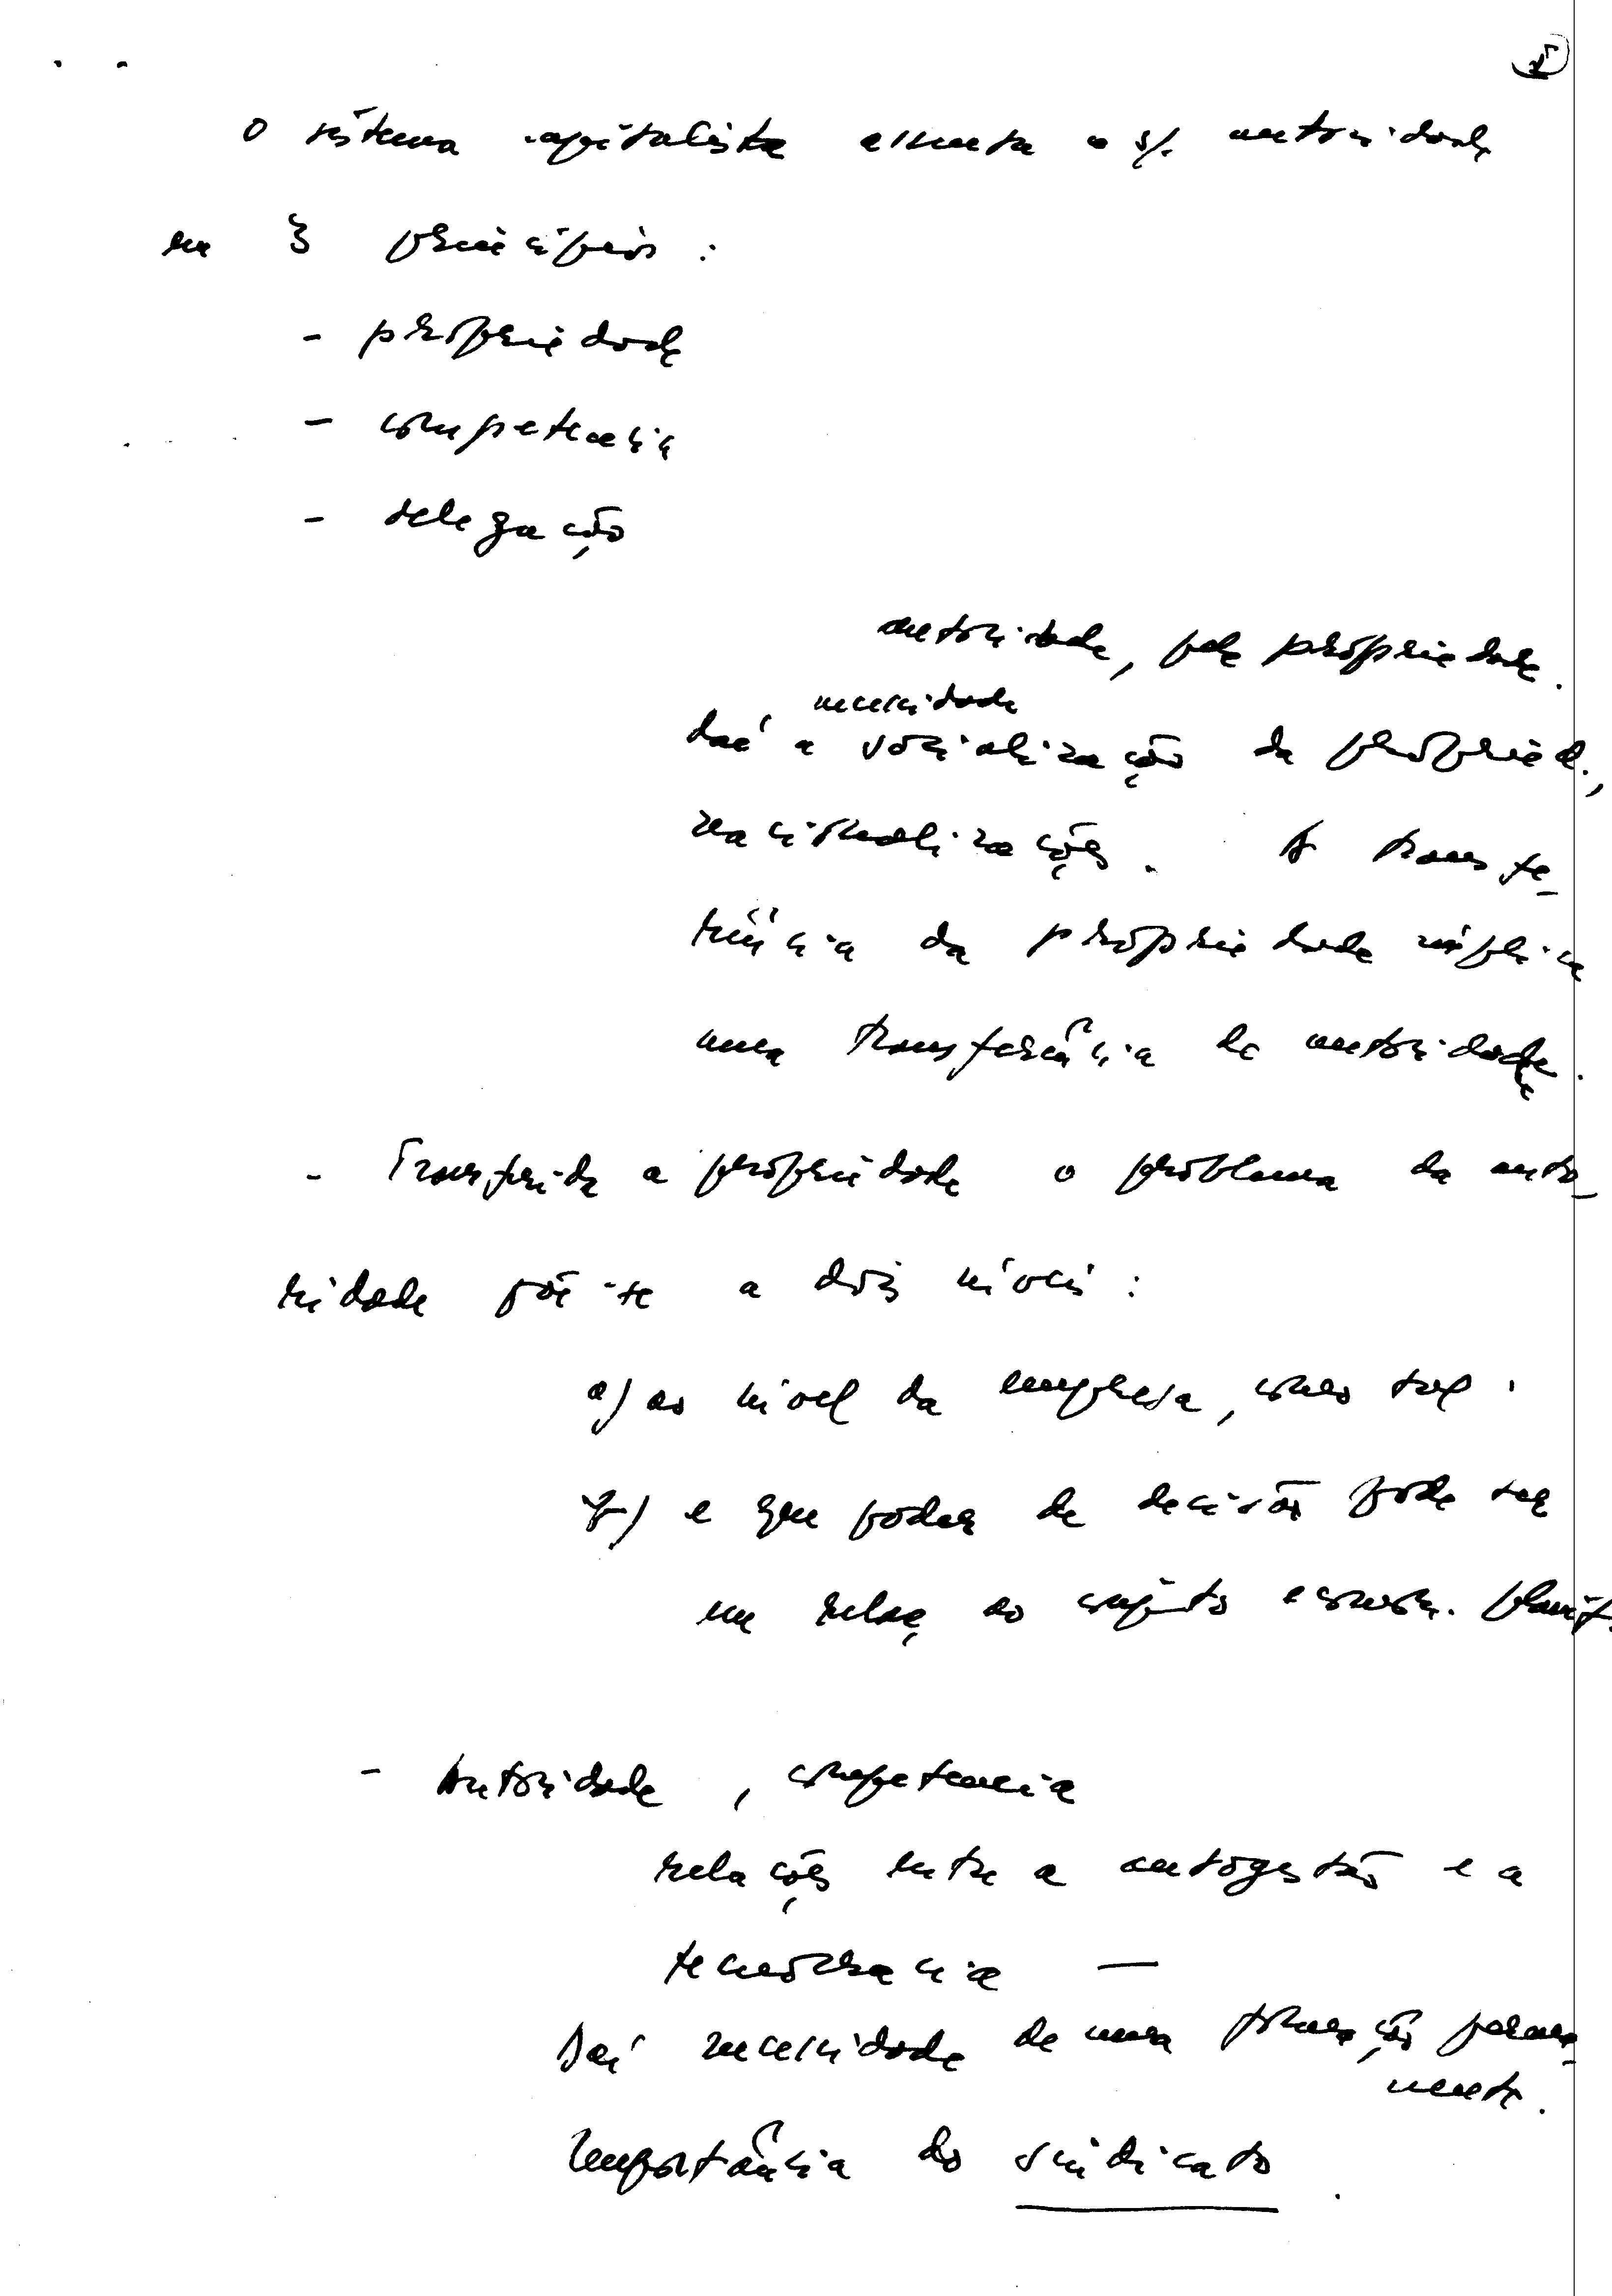 O sistema capitalista assenta a s/. autoridade
em 3 princípios :
- propriedade
- competencia
- delegação
autoridade, pela propriedade.
necessidade
daí a socialização da propried.,
nacionalizações. A transfe-
rência da propriedade implica
uma transferência de autoridade.
- Transferida a propriedade o problema da auto-
ridade põe-se a dois níveis :
a) ao nível da empresa, como tal.
b) e que poder de decisão pode ter
em relaç ao conjunto econom. planif.
- Autoridade , competencia
relações entre a autogestão e a
tecnocracia —
Daí necessidade de uma formação perma-
nente.
Importância do sindicato.